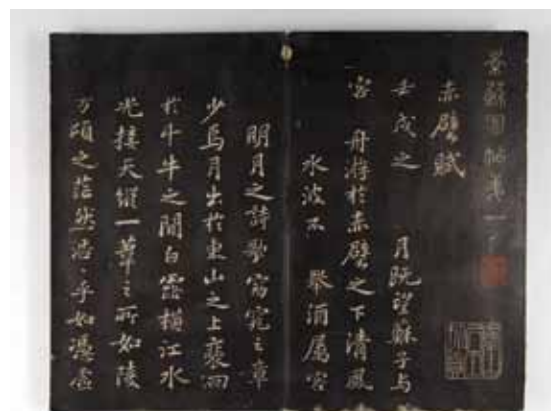 景蘇園帖弟一
赤壁賦
壬戌之 月既望蘇子與
客 舟游於赤壁之下清風
水波不 舉酒屬客
明月之詩歌窈窕之章
少焉月出於東山之上裵回
於斗牛之間白露橫江水
光接天縱一葦之所如陵
万頃之茫然浩〻乎如馮虛